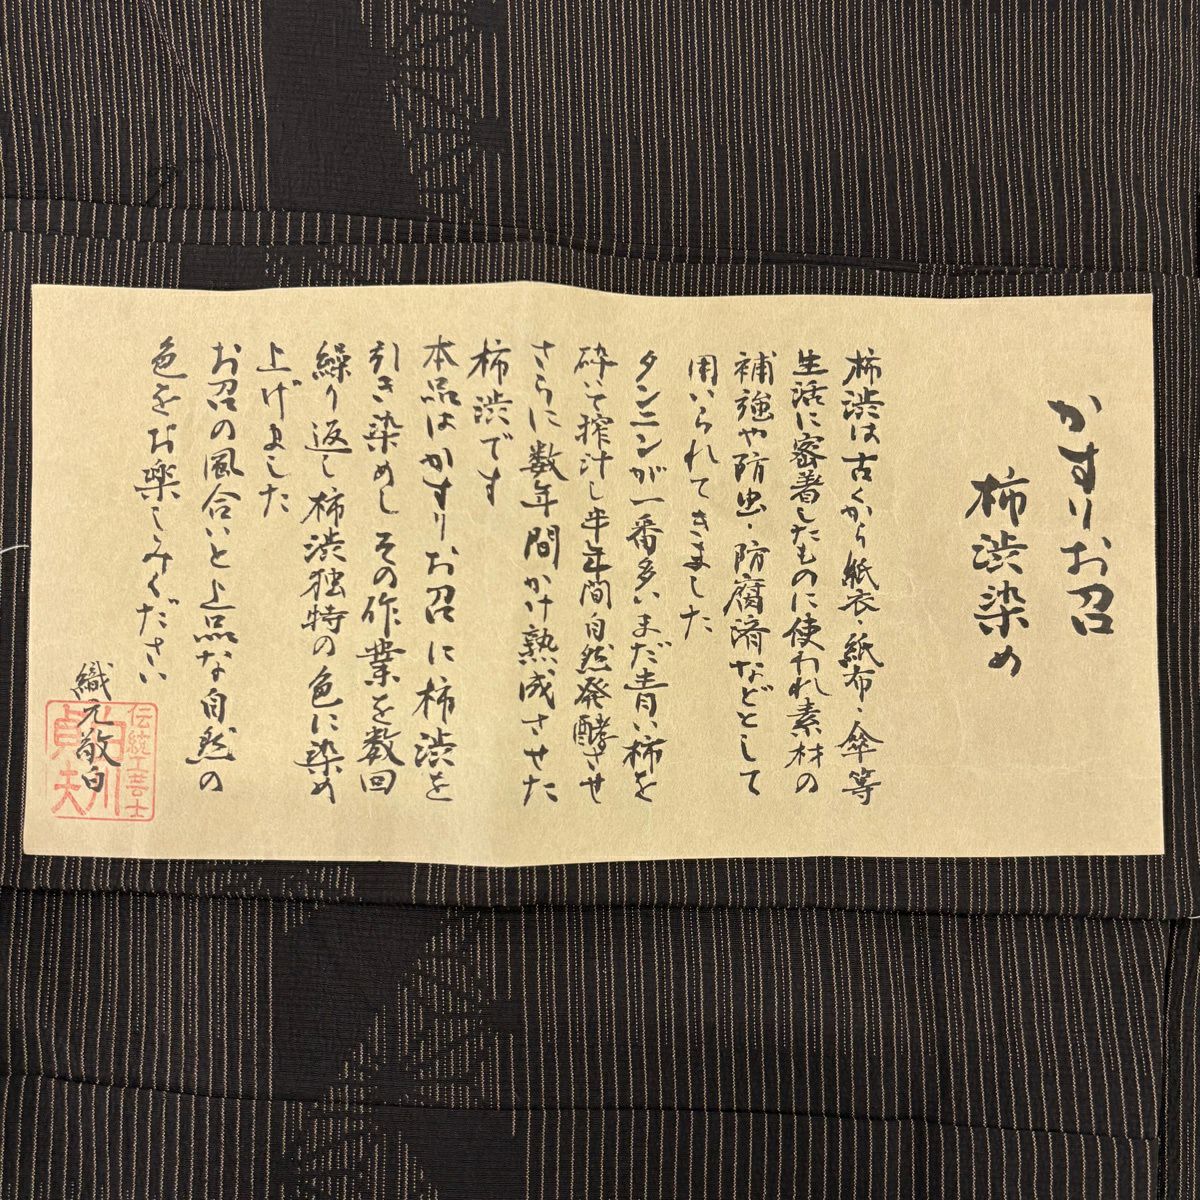 かすりお召
柿渋染め
柿渋は古くから紙衣・紙布・傘等
生活に密着したものに使われ素材の
補強や防虫・防腐済などとして
用いられてきました
タンニンが一番多いまだ青い柿を
砕いて搾汁し半年間自然発酵させ
さらに数年間かけ熟成させた
柿渋です
本品はかすりお召に柿渋を
引き染めしその作業を数回
繰り返し柿渋独特の色に染め
上げました
お召の風合いと上品な自然の
色をお楽しみください
織元敬白
伝統工芸士
貞夫